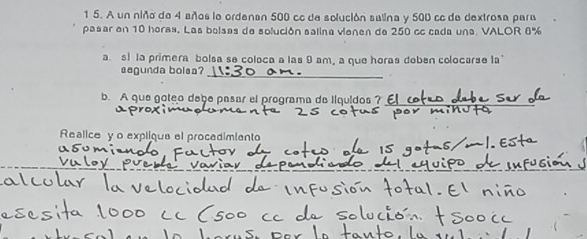 1 5. A un niño de 4 años le ordenan 500 cc de solución salina y 500 cc de dextrosa para
pasar en 10 horas. Las bolsas de solución salina vienen de 250 cc cada una. VALOR 6%
a. si la primera bolsa se coloca a las 9 am, a que horas deben colocarse la
segunda bolsa? 11:30 am.
b. A que goteo debe pasar el programa de líquidos? El coteo debe ser de
aproximadamente 25 cotas por minuto
Realice y o explique el procedimiento
asumiendo Factor de coteo de 15 gotas/ml. Este
valor puede variar dependiendo del equipo de infusión
alcular la velocidad de infusión total. El niño
esesita 1000 cc (500 cc de solución + 500 cc
horas. Por lo tanto, la